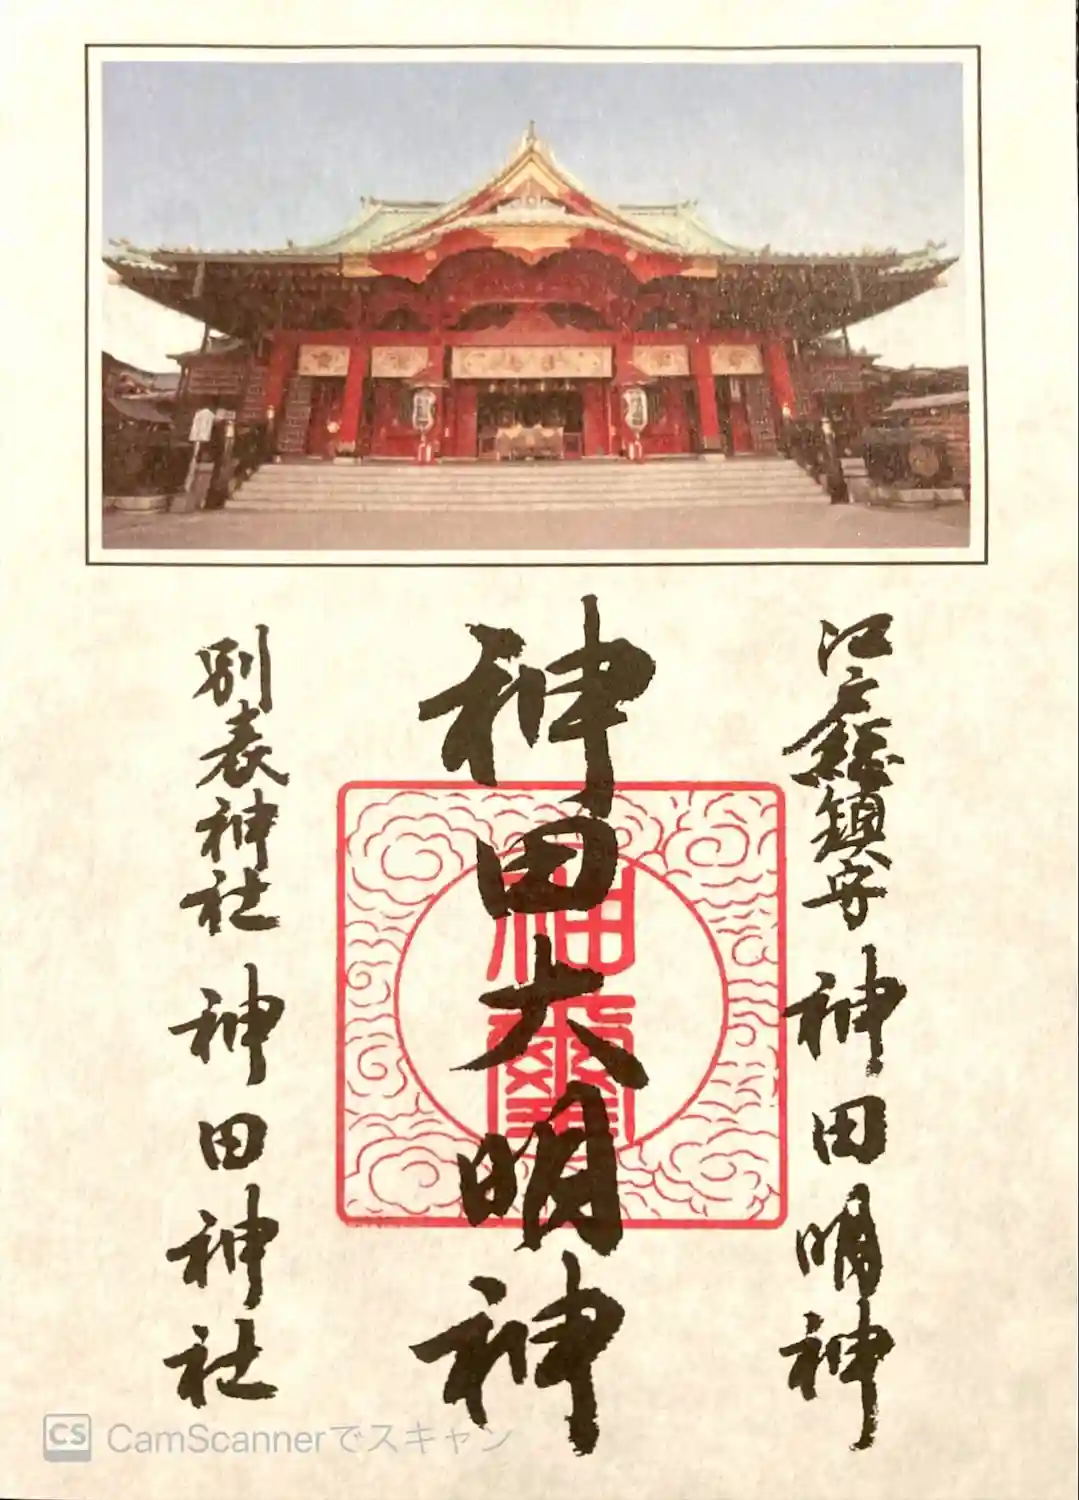 江戸総鎮守 神田明神
神田大明神
神璽
別表神社 神田神社
CS CamScannerでスキャン